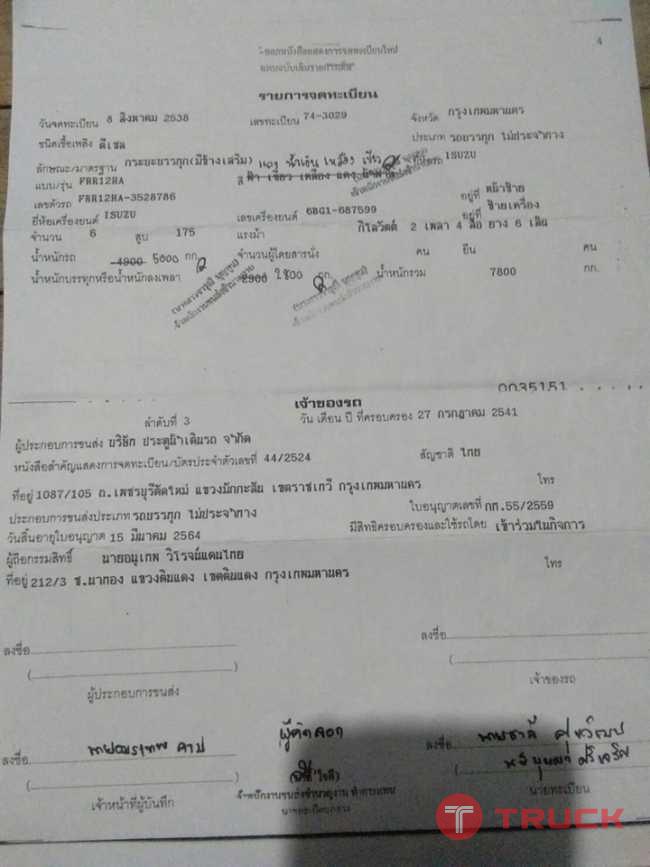 4
รายการจดทะเบียน
วันจดทะเบียน 8 สิงหาคม 2538 เลขทะเบียน 74-3029 จังหวัด กรุงเทพมหานคร
ชนิดเชื้อเพลิง ดีเซล ประเภท รถบรรทุก ไม่ประจำทาง
ลักษณะ/มาตรฐาน กระบะบรรทุก(มีข้างเสริม) แดง น้ำเงิน เหลือง เขียว ISUZU
แบบ/รุ่น FRR12HA สี ฟ้า เขียว เหลือง แดง
เลขตัวรถ FRR12HA-3528786 อยู่ที่ หน้าซ้าย
ยี่ห้อเครื่องยนต์ ISUZU เลขเครื่องยนต์ 6BG1-687599 อยู่ที่ ซ้ายเครื่อง
จำนวน 6 สูบ 175 แรงม้า กิโลวัตต์ 2 เพลา 4 ล้อ ยาง 6 เส้น
น้ำหนักรถ 4900 5000 กก. จำนวนผู้โดยสารนั่ง คน ยืน คน
น้ำหนักบรรทุกหรือน้ำหนักลงเพลา 2900 2800 กก. น้ำหนักรวม 7800 กก.
0035151
เจ้าของรถ
ลำดับที่ 3 วัน เดือน ปี ที่ครอบครอง 27 กรกฎาคม 2541
ผู้ประกอบการขนส่ง บริษัท ประตูน้ำเดินรถ จำกัด
หนังสือสำคัญแสดงการจดทะเบียน/บัตรประจำตัวเลขที่ 44/2524 สัญชาติ ไทย
ที่อยู่ 1087/105 ถ.เพชรบุรีตัดใหม่ แขวงมักกะสัน เขตราชเทวี กรุงเทพมหานคร โทร
ประกอบการขนส่งประเภท รถบรรทุก ไม่ประจำทาง ใบอนุญาตเลขที่ กท.55/2559
วันสิ้นอายุใบอนุญาต 15 มีนาคม 2564 มีสิทธิครอบครองและใช้รถโดย เข้าร่วมในกิจการ
ผู้ถือกรรมสิทธิ์ นายอนุเทพ วิโรจน์แดนไทย
ที่อยู่ 212/3 ซ.นาทอง แขวงดินแดง เขตดินแดง กรุงเทพมหานคร โทร
ลงชื่อ ลงชื่อ
ผู้ประกอบการขนส่ง เจ้าของรถ
ผู้คัดลอก
ลงชื่อ ลงชื่อ
เจ้าหน้าที่ผู้บันทึก นายทะเบียน
TRUCK